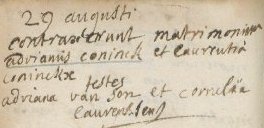 29 augusti
contraxerunt matrimonium
adrianus coninck et laurentia
coninckx
testes
adriana van son et cornelia
laurenssens